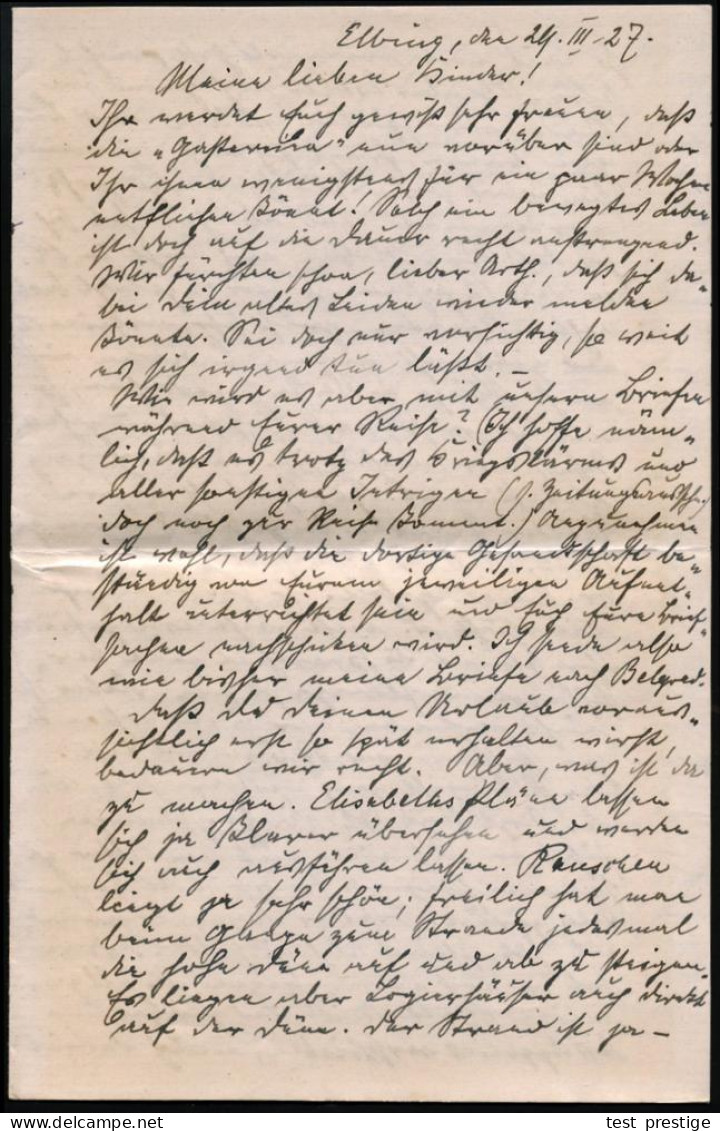 Elbing, den 24. III. 27.
Meine lieben Kinder!
Ihr werdet Euch gewiß sehr freuen, daß
die „Gastereien" nun vorüber sind oder
Ihr ihnen wenigstens für ein paar Wochen
entfliehen könnt! Solch ein bewegtes Leben
ist doch auf die Dauer recht anstrengend.
Wir fürchten schon, lieber Arth., daß sich da„
bei Dein altes Leiden wieder melden
könnte. Sei doch nur vorsichtig, so weit
es sich irgend tun läßt. –
Wie wird es aber mit unsern Briefen
während Eurer Reise? (Ich hoffe näm„
lich, daß es trotz des Kriegslärms und
aller sonstigen Intrigen (s. Zeitungsausschn.)
doch noch zur Reise kommt.) Anzunehmen
ist wohl, daß die dortige Gesandtschaft be„
ständig von Eurem jeweiligen Aufent„
halt unterrichtet sein und Euch Eure Brief„
sachen nachschicken wird. Ich sende also
wie bisher meine Briefe nach Belgrad.
Daß Du Deinen Urlaub voraus„
sichtlich erst so spät erhalten wirst,
bedauern wir recht. Aber, was ist da
zu machen. Elisabeths Pläne lassen
sich ja klarer übersehen und werden
sich auch ausführen lassen. Rauschen
liegt ja sehr schön; freilich hat man
beim Gange zum Strande jedesmal
die hohe Düne auf und ab zu steigen.
Es liegen aber Logierhäuser auch direkt
auf der Düne. Der Strand ist ja –
test_prestige